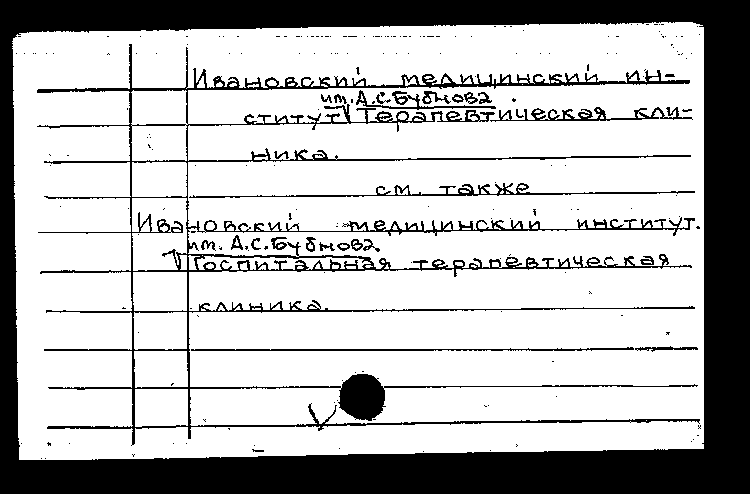 Ивановский медицинский ин-
им. А.С.Бубнова.
ститут Терапевтическая кли-
ника.
см. также
Ивановский медицинский институт.
им. А.С.Бубнова.
Госпитальная терапевтическая
клиника.